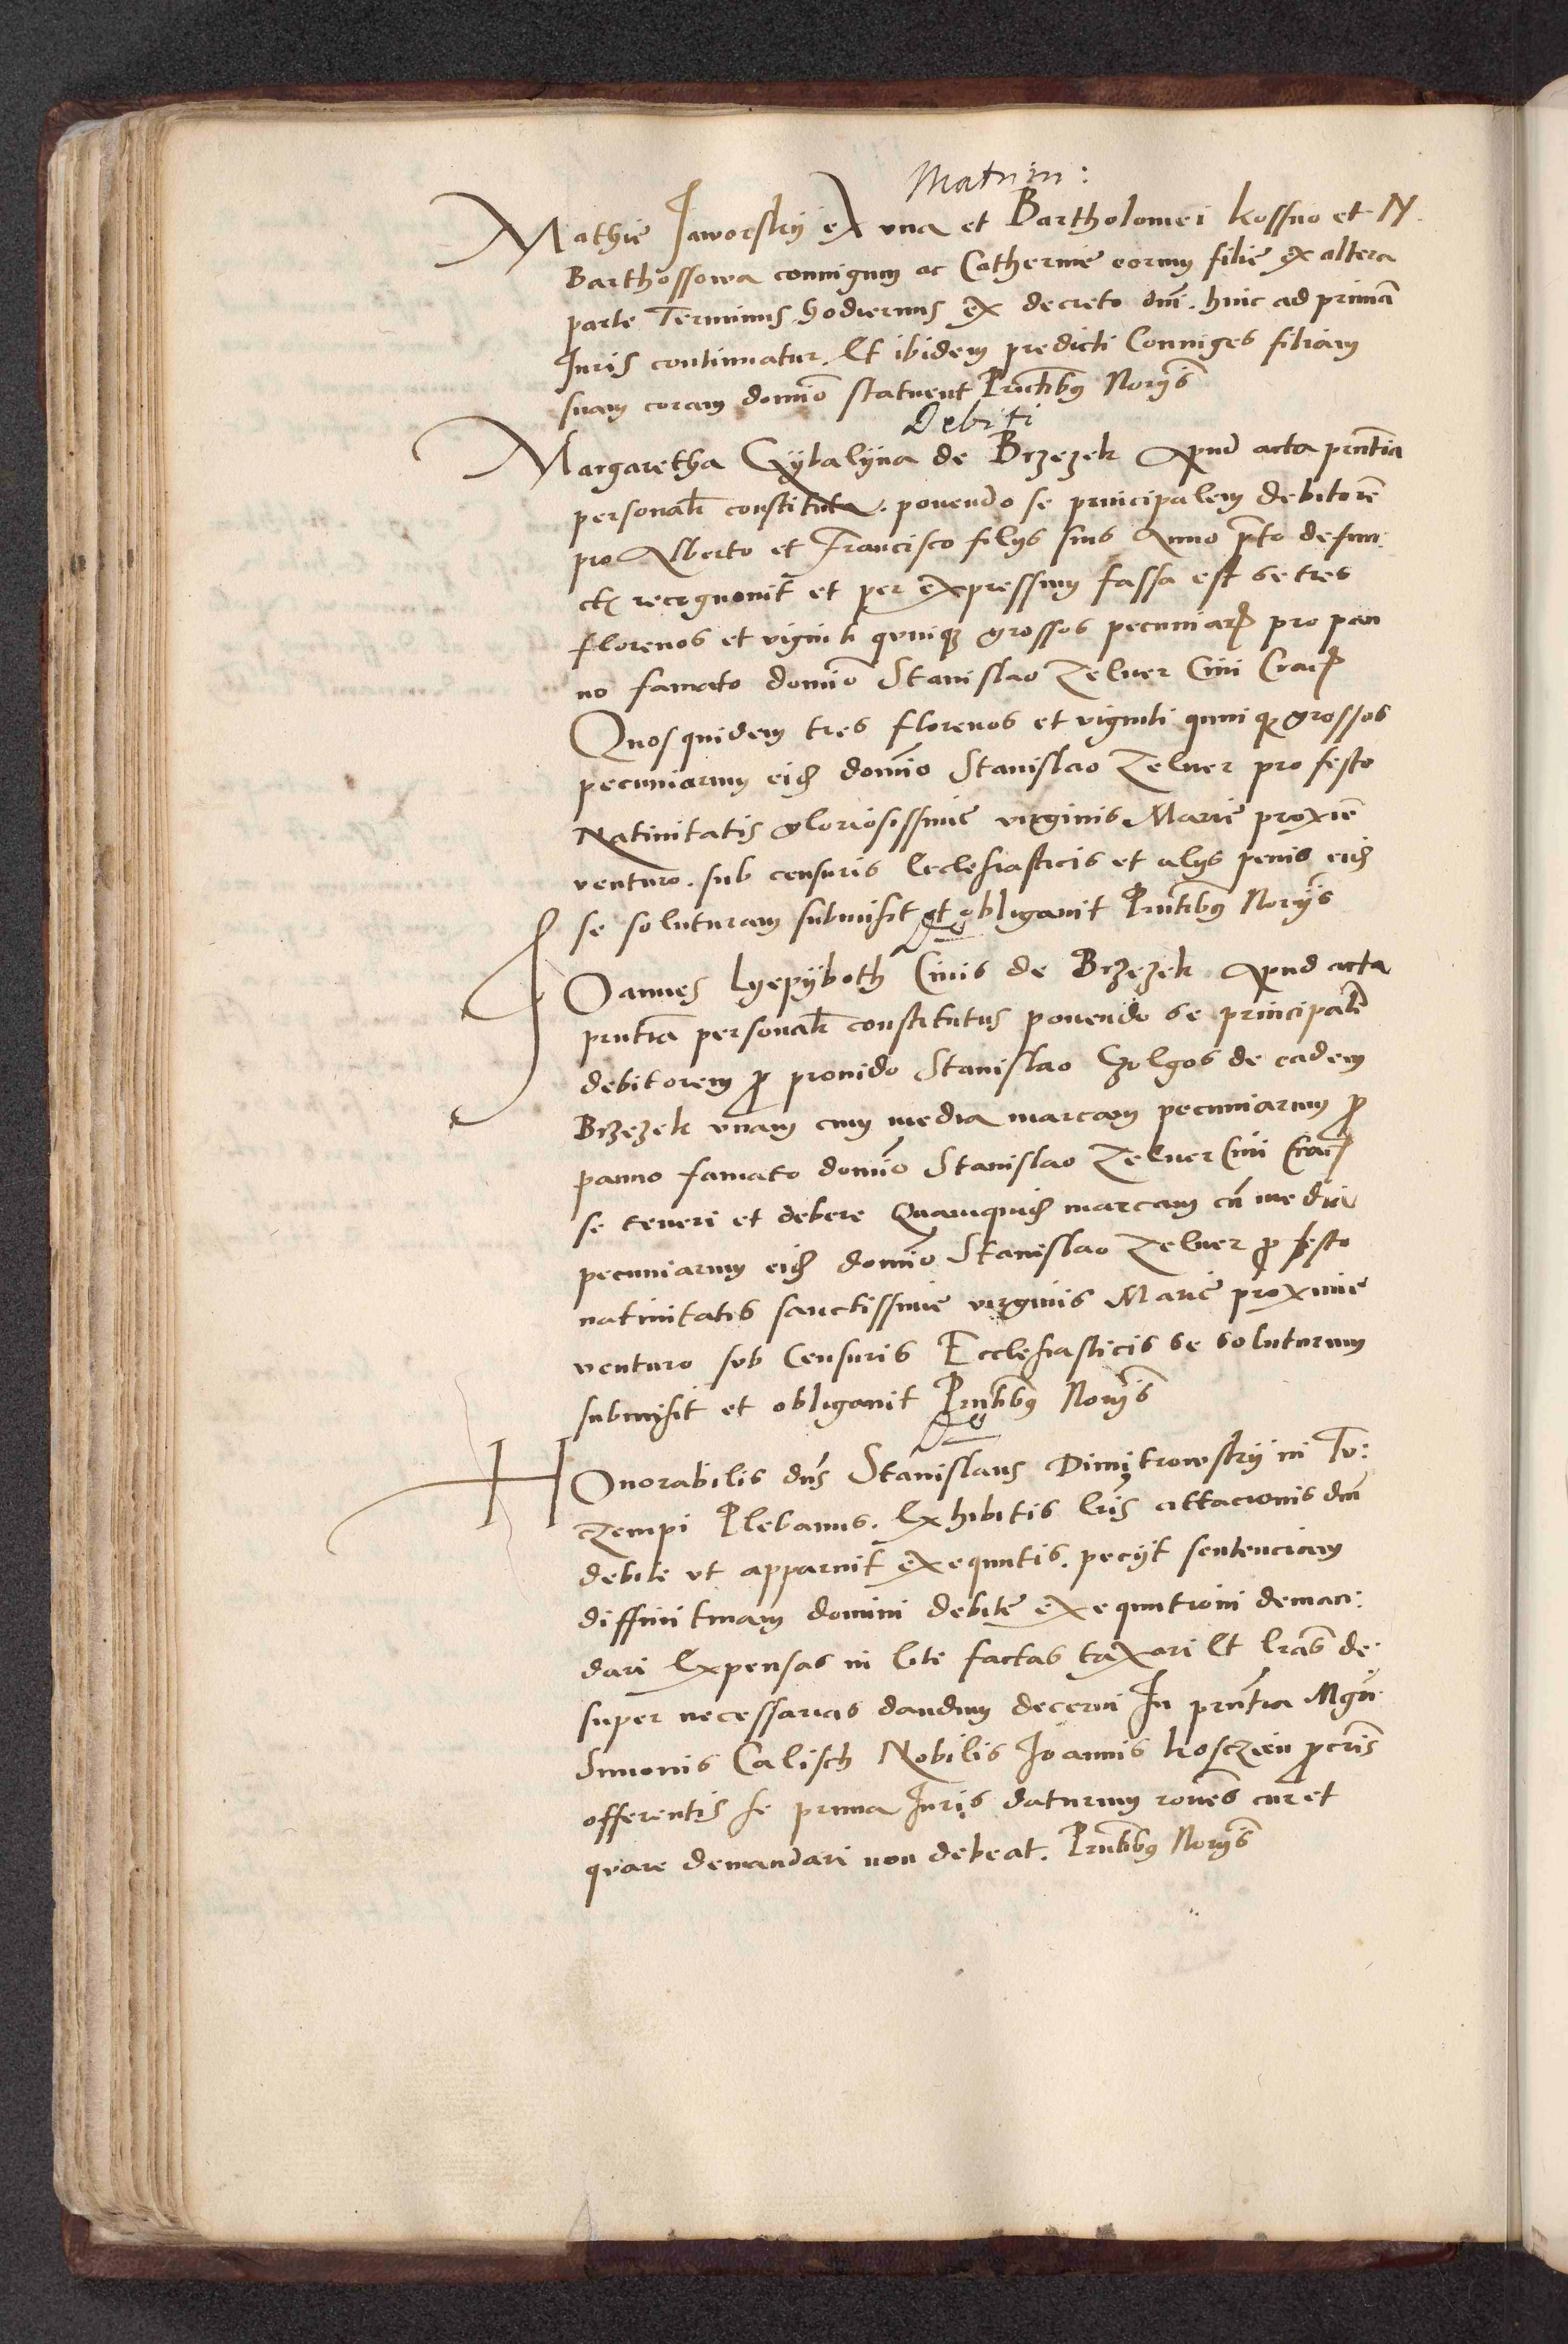 Matrim:
Mathie Jaworsky ex una et Bartholomei Kossno et N.
Barthossowa coniugum ac Catherine eorum filie ex altera
parte Terminus hodiernus ex decreto dni. hinc ad primã
Juris continuatur. Et ibidem predicti Coniuges filiam
suam coram domio statuent Pntibus Noriis
Debiti
Margaretha Gÿbalÿna de Brzezek Apud acta pntia
personalr constituta. ponendo se principalem debitorẽ
pro Alberto et Francisco filijs suis Anno pnto defun:
ctis recognouit et per expressum fassa est se tres
florenos et viginti quinque grossos pecuniar pro pan
no famato domio Stanislao Zelner Ciui Crac
Quosquidem tres florenos et viginti quinque grossos
pecuniarum eid domio Stanislao Zelner pro festo
Natiuitatis gloriosissime virginis Marie proxiẽ
venturo. sub censuris Ecclesiasticis et alijs penis eid
se soluturam submisit et obligauit Pntibus Noriis
Do
Joannes Lyepÿboth Ciuis de Brzezek Apud acta
pntia personalr constitutus ponendo se principalẽ
debitorem p prouido Stanislao Czolgos de eadem
Brzezek unam cum media marcam pecuniarum p
panno famato domio Stanislao Zelner Ciui Crac
se teneri et debere Quamquid marcam cũ media
pecuniarum eid domio Stanislao Zelner p festo
natiuitatis sanctissime virginis Marie proxime
venturo sub Censuris Ecclesiasticis se soluturum
submisit et obligauit Pntibus Noriis
Do
Honorabilis dns Stanislaus Dimitrowsky in
Plebanus. Exhibitis lris cittacionis dni
debite ut apparuit exequutis. pecijt sentenciam
diffinitiuam domini debite exequutioni deman:
dari Expensas in lite factas taxari Et lras de
super necessarias dandum decerni In pntia Mgri
Simonis Calisch Nobilis Joannis Kosczien pcris
offerentis se prima Juris daturum rones cur et
quare demandari non debeat. Pntibus Noriis